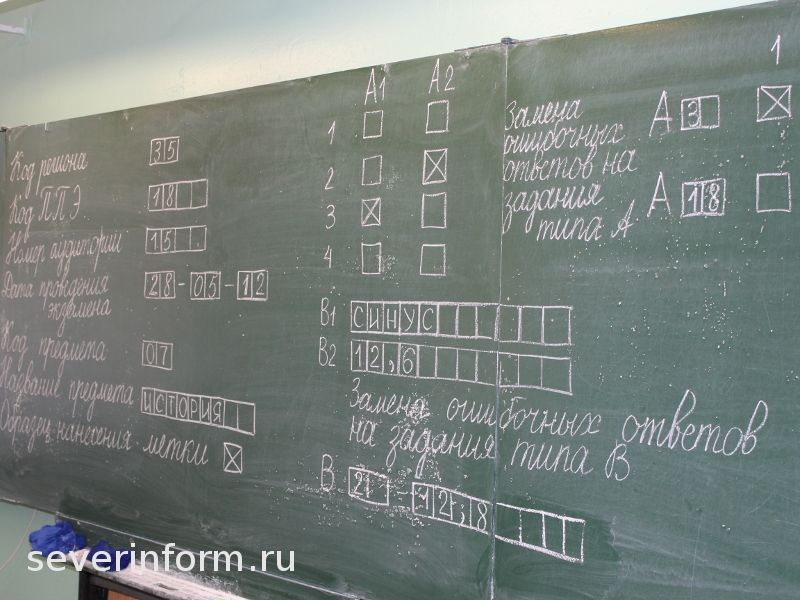 Код региона 35
Код ППЭ 18
Номер аудитории 15
Дата проведения экзамена 28-05-12
Код предмета 07
Название предмета ИСТОРИЯ
Образец нанесения метки
А1 А2
1
2
3
4
В1 СИНУС
В2 12,6
Замена ошибочных ответов
на задания типа В
В 2 - 12,8
Замена
ошибочных
ответов на
задания
типа А
1
А 3
А 18
severinform.ru